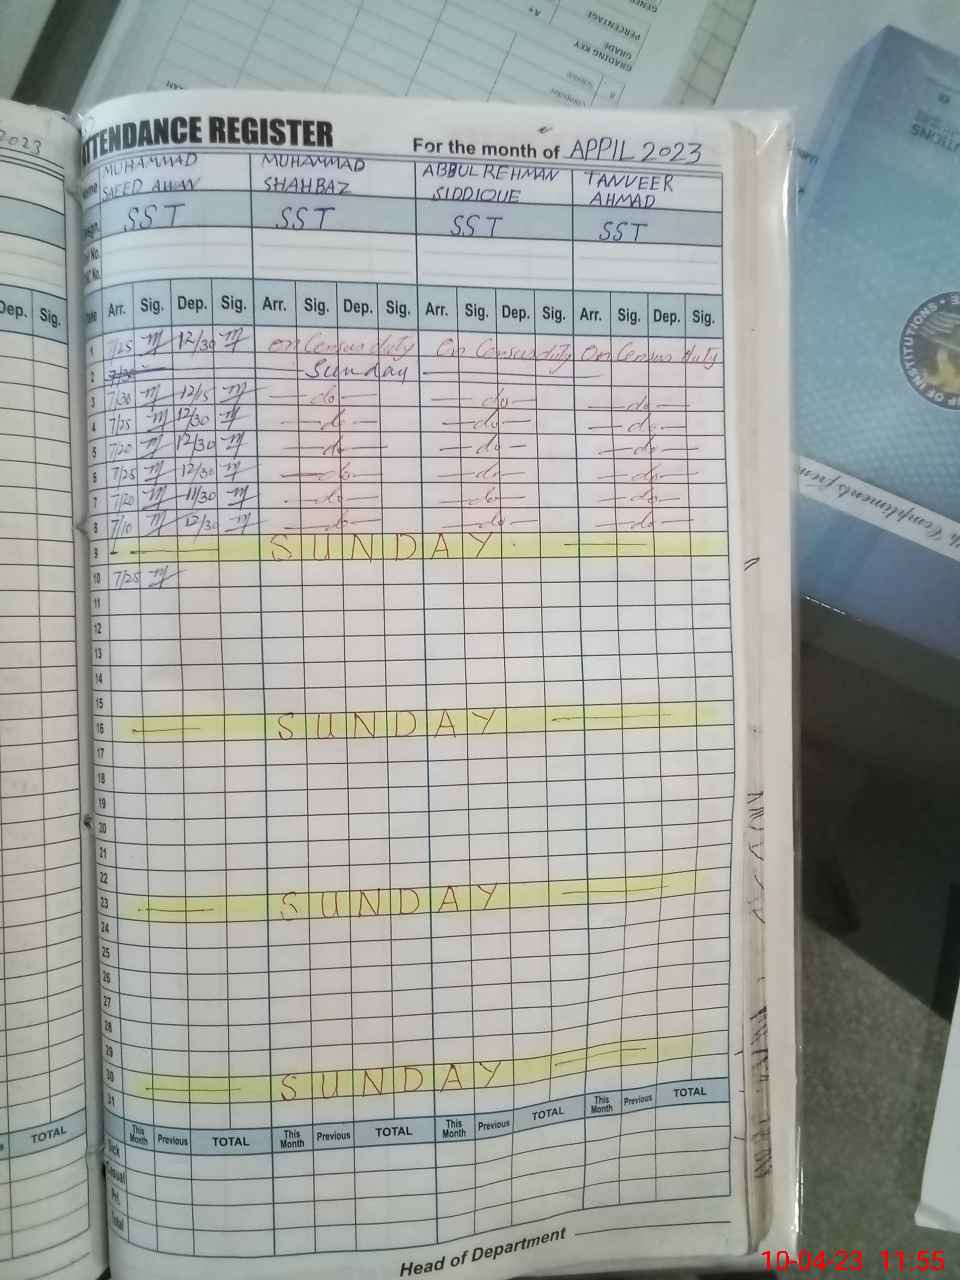 GRADING KEY
GRADE
PERCENTAGE
A+
Science
Computer
2023
ATTENDANCE REGISTER
For the month of APPIL 2023
MUHAMMAD SAEED AWAN MUHAMMAD SHAHBAZ ABBUL REHMAN SIDDIQUE TANVEER AHMAD
SST SST SST SST
Dep. Sig.
Arr. Sig. Dep. Sig. Arr. Sig. Dep. Sig. Arr. Sig. Dep. Sig. Arr. Sig. Dep. Sig.
1 7/25 12/30 on Census duty on Census duty on Census duty
2 7/30 Sunday
3 7/30 12/15 do do do
4 7/25 12/30 do do do
5 7/20 12/30 do do do
6 7/25 12/30 do do do
7 7/20 11/30 do do do
8 7/10 12/30 do do do
9 SUNDAY
10 7/25
11
12
13
14
15
16 SUNDAY
17
18
19
20
21
22
23 SUNDAY
24
25
26
27
28
29
30 SUNDAY
31
This Month Previous TOTAL This Month Previous TOTAL This Month Previous TOTAL This Month Previous TOTAL
TOTAL
Sick
Casual
Pri.
Total
Head of Department
OF INSTITUTIONS
Compliments from
10-04-23 11.55